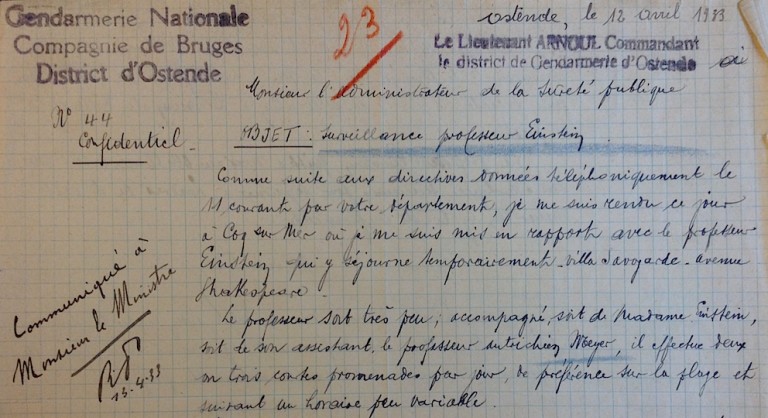 Gendarmerie Nationale
Compagnie de Bruges
District d'Ostende
23
Ostende, le 12 avril 1933
Le Lieutenant ARNOUL Commandant
le district de Gendarmerie d'Ostende à
Monsieur l'administrateur de la Sûreté publique
N° 44
Confidentiel.
OBJET : Surveillance professeur Einstein.
Comme suite aux directives données téléphoniquement le
11 courant par votre département, je me suis rendu ce jour
à Coq sur Mer où je me suis mis en rapport avec le professeur
Einstein qui y séjourne temporairement - villa Savoyarde - avenue
Shakespeare.
Le professeur sort très peu; accompagné, soit de Madame Einstein,
soit de son assistant, le professeur autrichien Meyer, il effectue deux
ou trois courtes promenades par jour, de préférence sur la plage et
suivant un horaire peu variable.
Communiqué à
Monsieur le Ministre
13-4-33